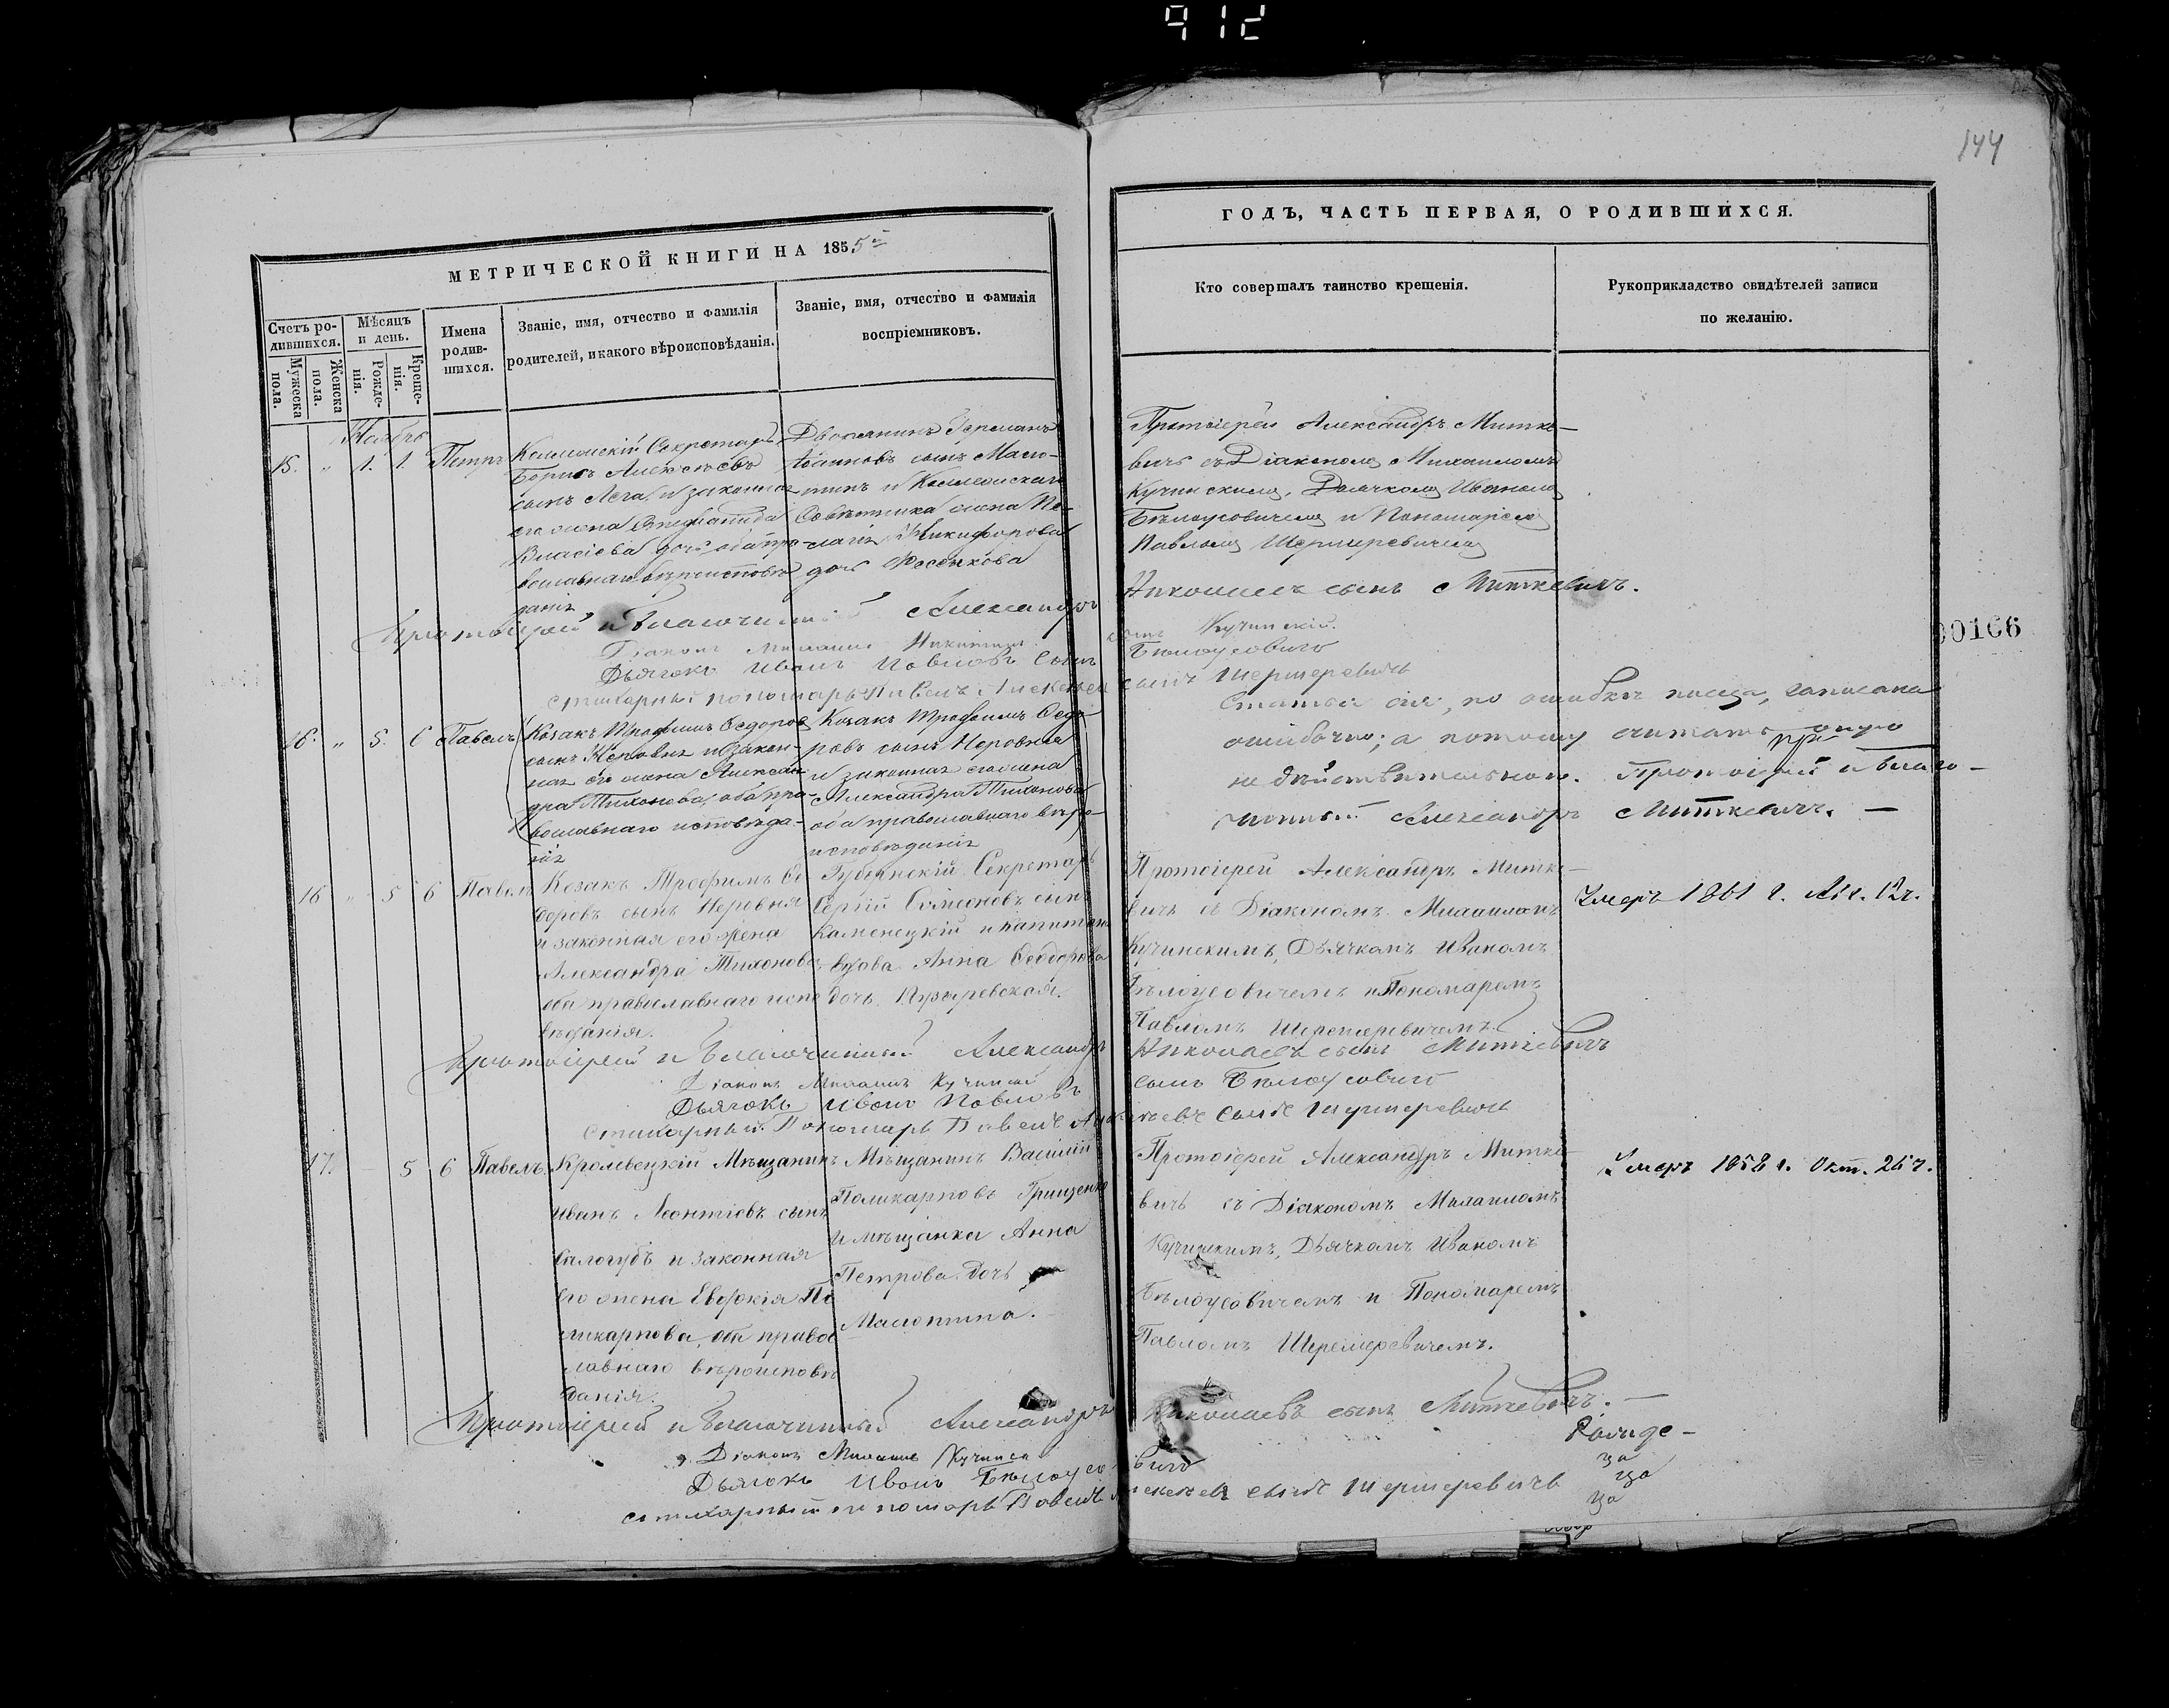 912
144
МЕТРИЧЕСКОЙ КНИГИ НА 1855й
ГОДЪ, ЧАСТЬ ПЕРВАЯ, О РОДИВШИХСЯ.
Счетъ ро-
дившихся.
Мужеска
пола.
Женска
пола.
Мѣсяцъ
и день.
Рожде-
нія.
Креще-
нія.
Имена
родив-
шихся.
Званіе, имя, отчество и фамилія
родителей, и какого вѣроисповѣданія.
Званіе, имя, отчество и фамилія
воспріемниковъ.
Кто совершалъ таинство крещенія.
Рукоприкладство свидѣтелей записи
по желанію.
Ноябрь
15. " 1. 1. Петръ
Секретарь
Борисъ Алексѣевъ
сынъ и законная
его жена
Власіева дочь оба пра-
вославнаго вѣроисповѣ
данія
Дворянинъ Германъ
сынъ
и
Совѣтника жена Пе-
лагія Никифорова
дочь
Протоіерей Александръ Митке-
вичъ съ Діакономъ Михаиломъ
Кучинскимъ, Дьячкомъ Иваномъ
Бѣлоусовичемъ и Пономаремъ
Павломъ
Протоіерей и Благочинный Александръ Николаевъ сынъ Миткевичъ.
Діаконъ Михаилъ Никитинъ сынъ Кучинскій
Дьячокъ Иванъ Павловъ сынъ Бѣлоусовичъ
Стихарный пономарь Павелъ Алексѣевъ сынъ
00166
16. " 5. 6 Павелъ
Козакъ Трофимъ Федоровъ
сынъ Неровня и закон-
ная его жена Алексан-
дра Тихонова, оба пра-
вославнаго исповѣда-
нія
Козакъ Трофимъ Федо-
ровъ сынъ Неровня
и законная его жена
Александра Тихонова
оба православнаго вѣро-
исповѣданія
Статья сія, по ошибкѣ писца, записана
ошибочно; а потому считать оную
не дѣйствительною. Протоіерей и Благо-
чинный Александръ Миткевичъ. —
16 " 5 6 Павелъ
Козакъ Трофимъ Ѳе
доровъ сынъ Неровня
и законная его жена
Александра Тихонова
оба православнаго испо
вѣданія.
Губернскій Секретарь
Сергій Симеоновъ сынъ
Каменецкій и капитана
вдова Анна Ѳеодорова
дочь
Протоіерей Александръ Митке-
вичъ съ Діакономъ Михаиломъ
Кучинскимъ, Дьячкомъ Иваномъ
Бѣлоусовичемъ и Пономаремъ
Павломъ
Умеръ 1861 г.
Протоіерей и Благочинный Александръ Николаевъ сынъ Миткевичъ
Діаконъ Михаилъ Кучинскій
Дьячокъ Иванъ Павловъ сынъ Бѣлоусовичъ
Стихарный Пономарь Павелъ Алексѣевъ сынъ
17. 5 6 Павелъ
Кролевецкій Мѣщанинъ
Иванъ Леонтіевъ сынъ
и законная
его жена Евдокія По
ликарпова, оба право
славнаго вѣроисповѣ
данія.
Мѣщанинъ Василій
Поликарповъ Грищенко
и мѣщанка Анна
Петрова дочь
Масютина.
Протоіерей Александръ Митке
вичъ съ Діакономъ Михаиломъ
Кучинскимъ, Дьячкомъ Иваномъ
Бѣлоусовичемъ и Пономаремъ
Павломъ
Умеръ 1858 г. Окт. 26 ч.
Протоіерей и Благочинный Александръ Николаевъ сынъ Миткевичъ. —
Діаконъ Михаилъ Кучинскій
Дьячокъ Иванъ Бѣлоусовичъ
Стихарный пономарь Павелъ Алексѣевъ сынъ